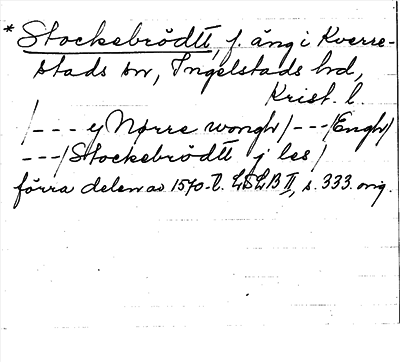 * Stockebrödtt, f. äng i Kverre-
stads sn, Ingelstads hd,
Krist. l.
/--- y Nørre wongh/---/Engh/
---/Stockebrödtt j les/
förra delen av 1570-t. LSLB II, s. 333. orig.